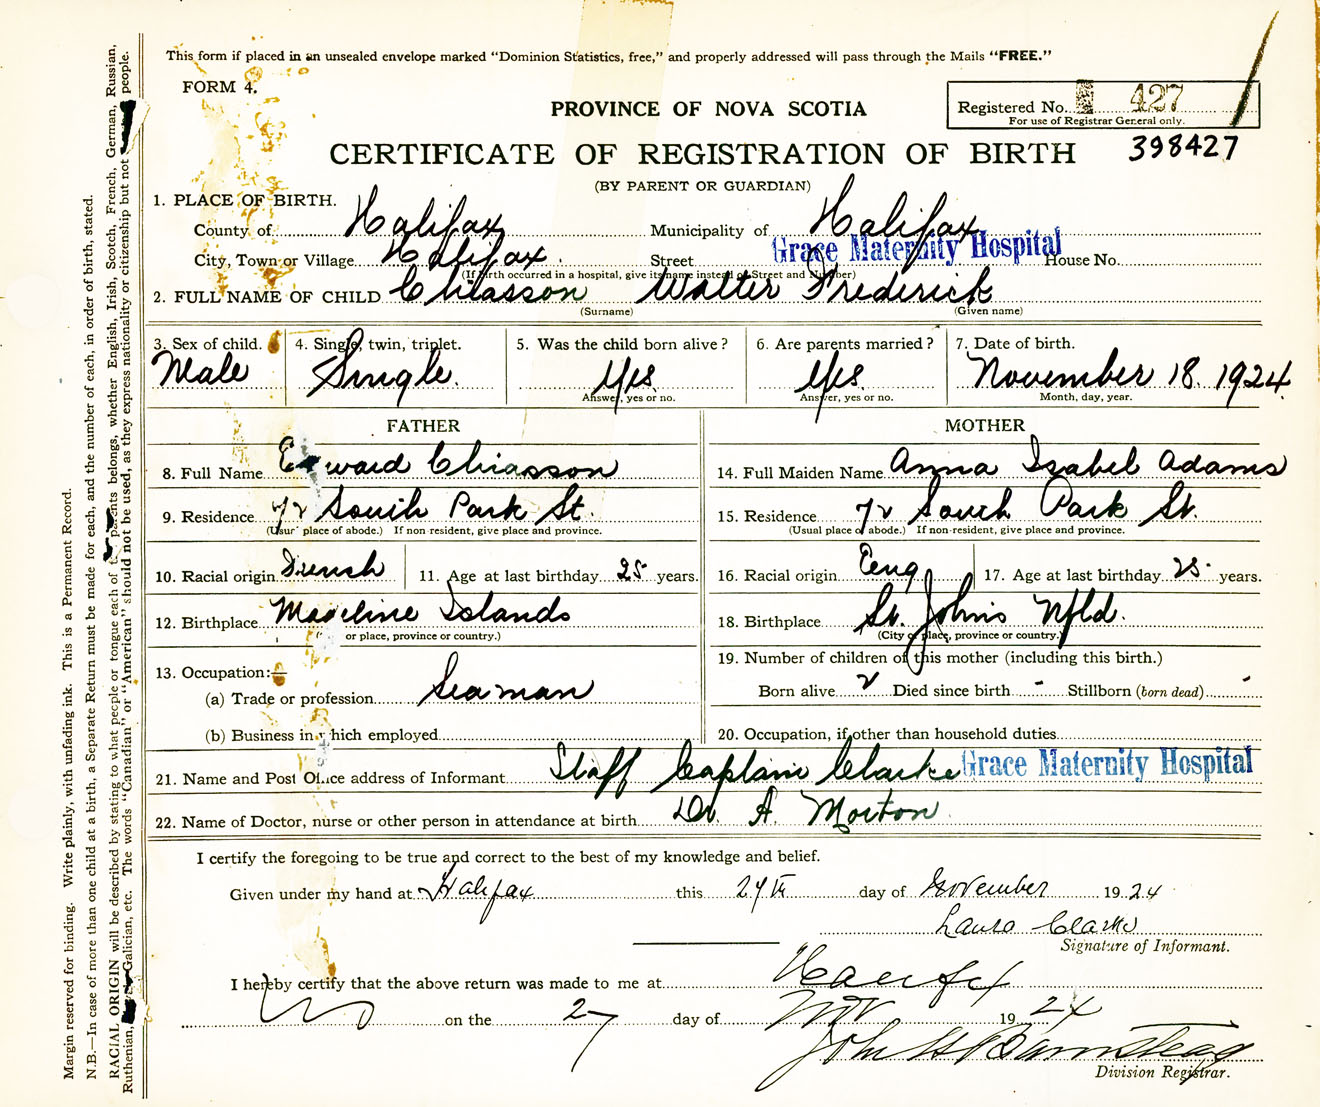 This form if placed in an unsealed envelope marked "Dominion Statistics, free," and properly addressed will pass through the Mails "FREE."
FORM 4.
PROVINCE OF NOVA SCOTIA
Registered No. 427
For use of Registrar General only.
CERTIFICATE OF REGISTRATION OF BIRTH
398427
(BY PARENT OR GUARDIAN)
1. PLACE OF BIRTH.
County of Halifax Municipality of Halifax
City, Town or Village Halifax Street Grace Maternity Hospital House No.
(If birth occurred in a hospital, give its name instead of Street and Number)
2. FULL NAME OF CHILD Chiasson Walter Frederick
(Surname) (Given name)
3. Sex of child. 4. Single, twin, triplet. 5. Was the child born alive? 6. Are parents married? 7. Date of birth.
Male Single. Yes Yes November 18. 1924.
Answer, yes or no. Answer, yes or no. Month, day, year.
FATHER MOTHER
8. Full Name Edward Chiasson 14. Full Maiden Name Anna Isabel Adams
9. Residence 72 South Park St. 15. Residence 72 South Park St.
(Usual place of abode.) If non-resident, give place and province. (Usual place of abode.) If non-resident, give place and province.
10. Racial origin French 11. Age at last birthday 25 years. 16. Racial origin Eng 17. Age at last birthday 25 years.
12. Birthplace Madeline Islands 18. Birthplace St. John's Nfld.
or place, province or country.) (City or place, province or country.)
13. Occupation: 19. Number of children of this mother (including this birth.)
(a) Trade or profession Seaman Born alive 2 Died since birth - Stillborn (born dead) -
(b) Business in which employed 20. Occupation, if other than household duties
21. Name and Post Office address of Informant Staff Captain Clarke Grace Maternity Hospital
22. Name of Doctor, nurse or other person in attendance at birth Dr. A. Morton
I certify the foregoing to be true and correct to the best of my knowledge and belief.
Given under my hand at Halifax this 27th day of November 1924
Laura Clarke
Signature of Informant.
I hereby certify that the above return was made to me at Halifax
on the 27 day of Nov 1924
John H Barnstead
Division Registrar.
Margin reserved for binding. Write plainly, with unfading ink. This is a Permanent Record.
N.B.—In case of more than one child at a birth, a Separate Return must be made for each, and the number of each, in order of birth, stated.
RACIAL ORIGIN will be described by stating to what people or tongue each of the parents belongs, whether English, Irish, Scotch, French, German, Russian,
Ruthenian, Galician, etc. The words "Canadian" or "American" should not be used, as they express nationality or citizenship but not people.